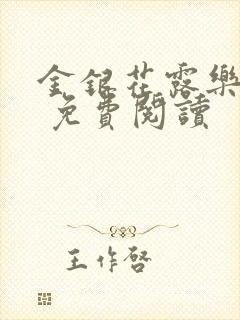 金銀花露樂
免費閱讀
王作啓